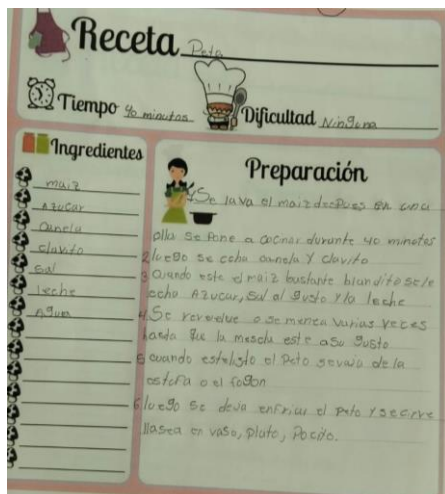 Receta Peto
Tiempo 40 minutos Dificultad Ninguna
Ingredientes
maiz
Azucar
canela
clavito
sal
leche
Agua
Preparación
1 Se lava el maiz despues en una
olla se Pone a cocinar durante 40 minutos
2 luego se echa canela Y clavito
3 Cuando este el maiz bastante blandito se le
echa Azucar, sal al gusto Y la leche
4. Se revuelve o se menea varias veces
hasta que la mescla este a su gusto
5 cuando este listo el Peto se vaja de la
estofa o el fogon
6 luego se deja enfriar el Peto Y se cirve
lla sea en vaso, Plato, Pocillo.